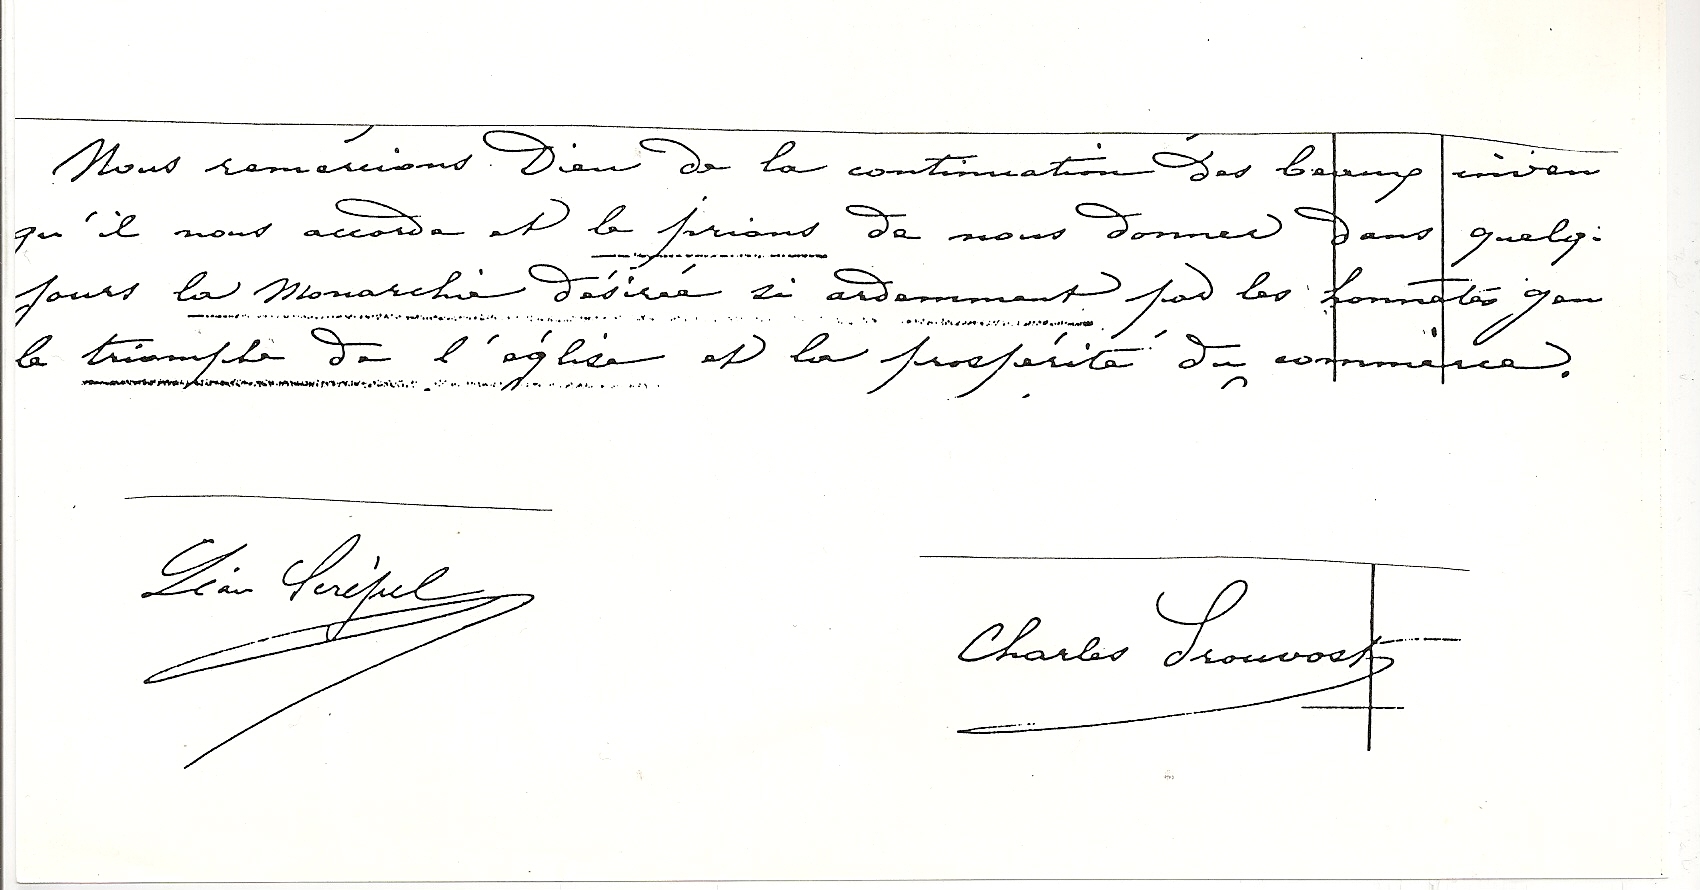 Nous remércions Dieu de la continuation des beaux inven
qu'il nous accorde et le prions de nous donner dans quelq:
jours la Monarchie désirée si ardemment par les honnêtes gen
le triomphe de l'église et la prospérité du commèrce.
Léon Scrépel
Charles Prouvost